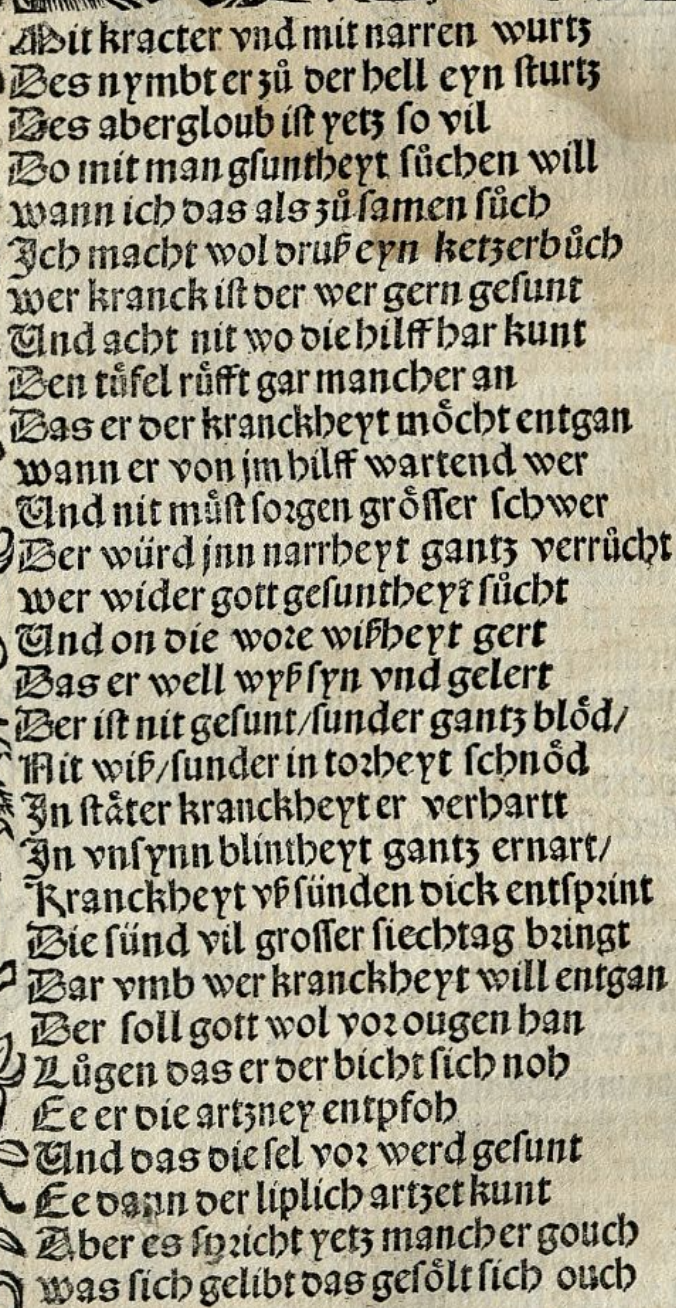 Mit kracter vnd mit narren wurtz
Des nymbt er zuͦ der hell eyn sturtz
Des abergloub ist yetz so vil
Do mit man gsuntheyt suͦchen will
wann ich das als zuͦ samen suͦch
Ich macht wol druß eyn ketzerbuͦch
wer kranck ist der wer gern gesunt
Und acht nit wo die hilff har kunt
Den tüfel ruͤfft gar mancher an
Das er der kranckheyt moͤcht entgan
wann er von jm hilff wartend wer
Und nit muͤst sorgen groͤsser schwer
Der würd jnn narrheyt gantz verruͦcht
wer wider gott gesuntheyt suͦcht
Und on die wore wißheyt gert
Das er well wyß syn vnd gelert
Der ist nit gesunt/sunder gantz bloͤd/
Nit wiß/sunder in torheyt schnoͤd
In staͤter kranckheyt er verhartt
In vnsynn blintheyt gantz ernart/
Kranckheyt vß sünden dick entsprint
Die sünd vil grosser siechtag bringt
Dar vmb wer kranckheyt will entgan
Der soll gott wol vor ougen han
Luͦgen das er der bicht sich noh
Ee er die artzney entpfoh
Und das die sel vor werd gesunt
Ee dann der liplich artzet kunt
Aber es spricht yetz mancher gouch
was sich gelibt das gesoͤlt sich ouch